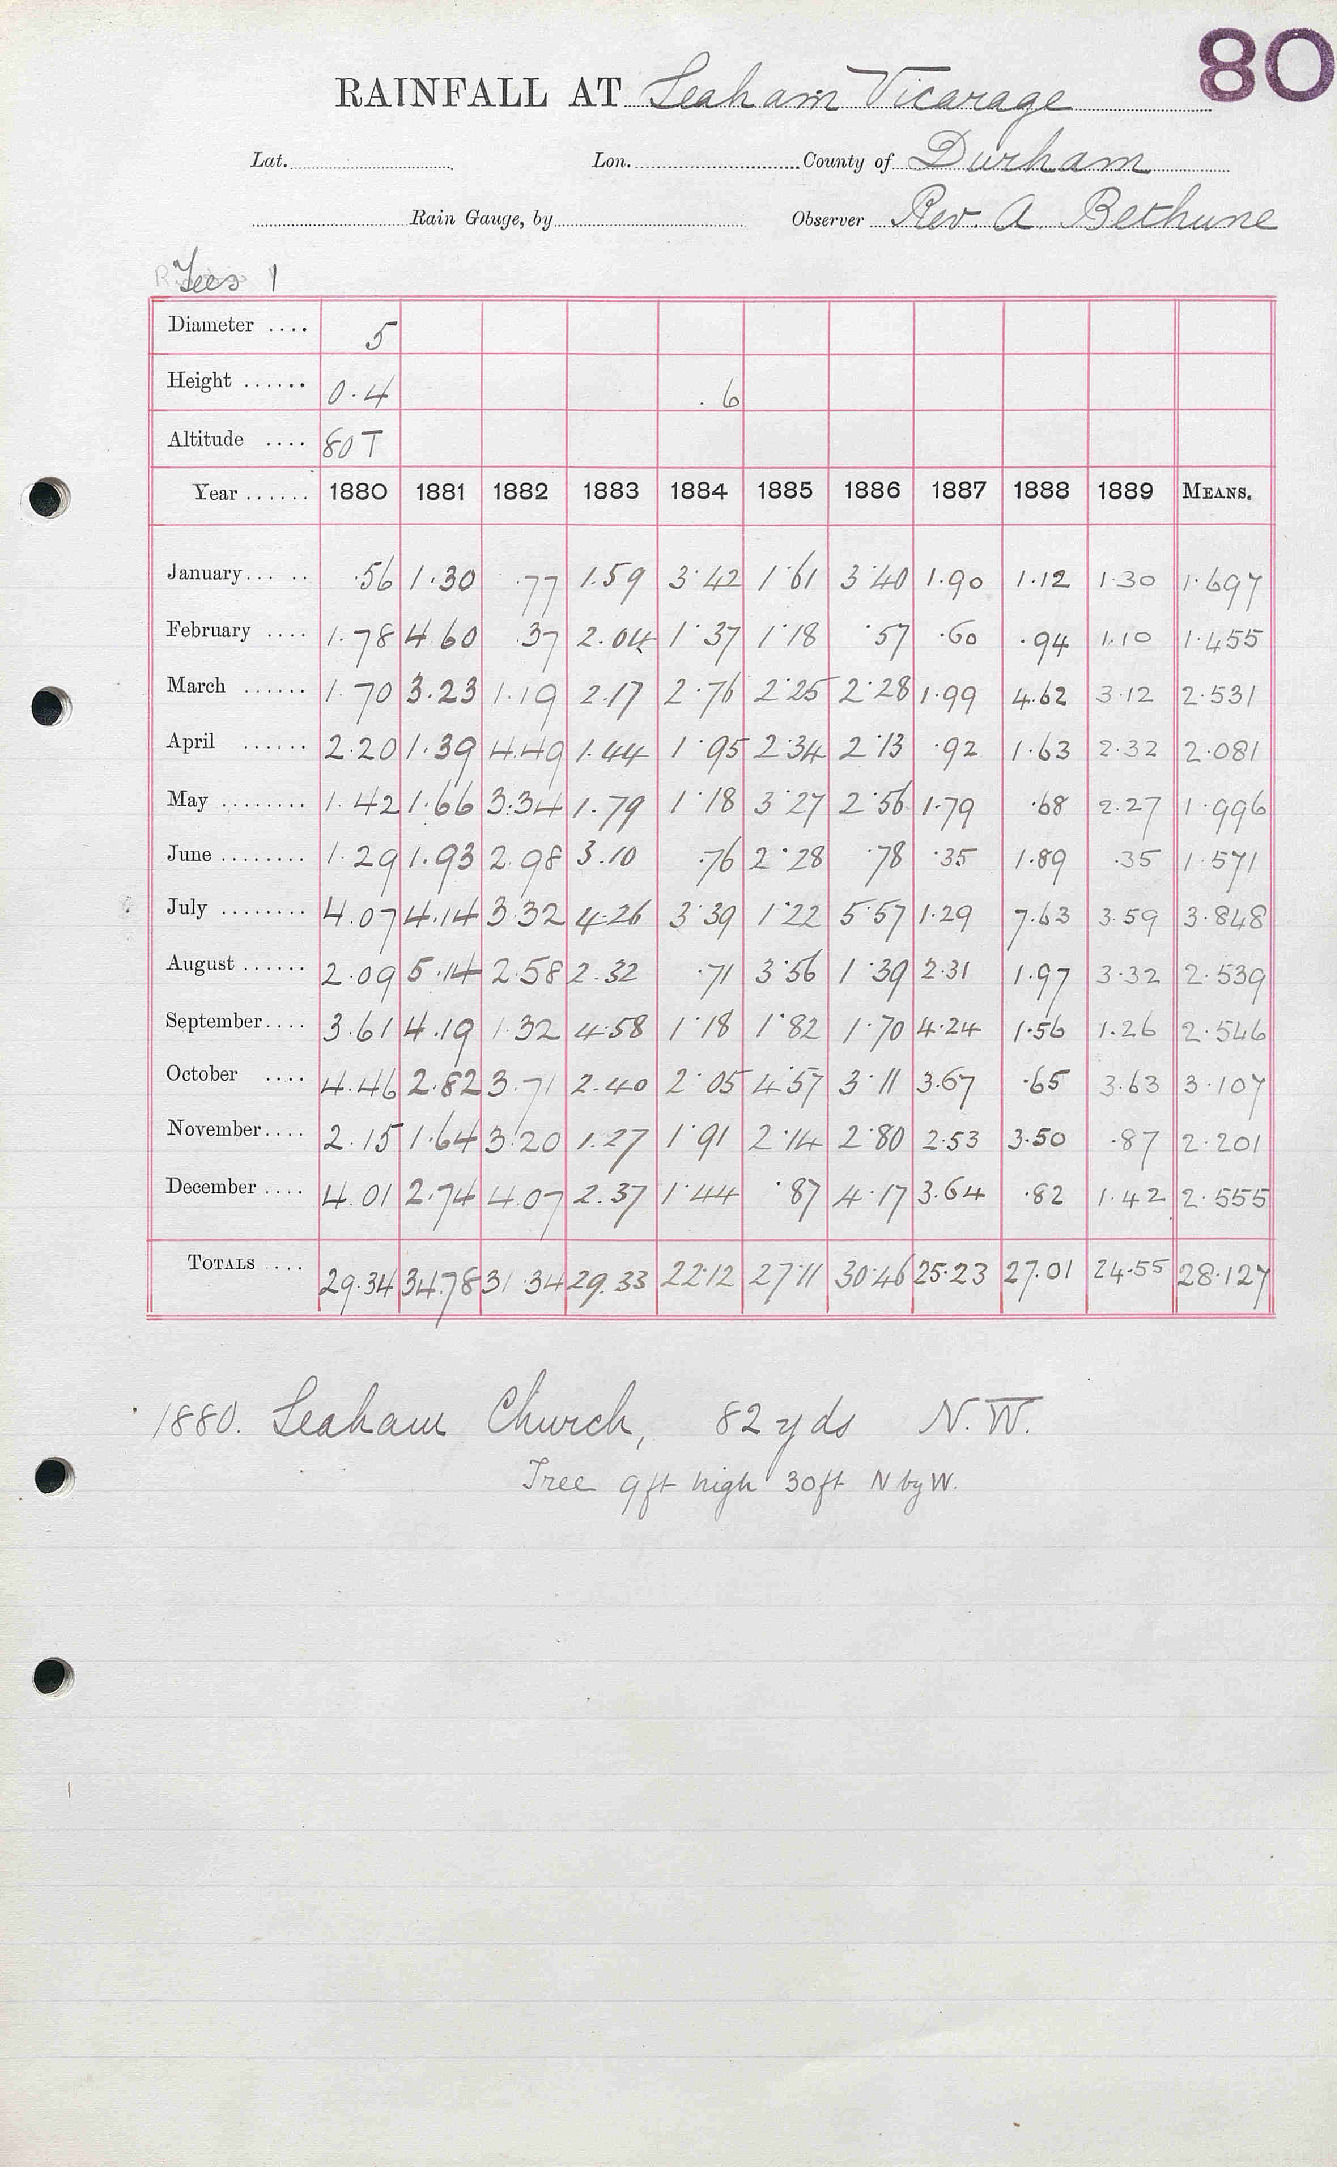 80
RAINFALL AT Seaham Vicarage
Lat. Lon. County of Durham
Rain Gauge, by Observer Rev. A. Bethune
Tees 1
Diameter .... 5
Height ...... 0.4 .6
Altitude .... 80 T
Year ...... 1880 1881 1882 1883 1884 1885 1886 1887 1888 1889 MEANS.
January... .. .56 1.30 .77 1.59 3.42 1.61 3.40 1.90 1.12 1.30 1.697
February .... 1.78 4.60 .37 2.04 1.37 1.18 .57 .60 .94 1.10 1.455
March ...... 1.70 3.23 1.19 2.17 2.76 2.25 2.28 1.99 4.62 3.12 2.531
April ...... 2.20 1.39 4.49 1.44 1.95 2.34 2.13 .92 1.63 2.32 2.081
May ........ 1.42 1.66 3.34 1.79 1.18 3.27 2.56 1.79 .68 2.27 1.996
June ........ 1.29 1.93 2.98 3.10 .76 2.28 .78 .35 1.89 .35 1.571
July ........ 4.07 4.14 3.32 4.26 3.39 1.22 5.57 1.29 7.63 3.59 3.848
August ...... 2.09 5.14 2.58 2.32 .71 3.56 1.39 2.31 1.97 3.32 2.539
September.... 3.61 4.19 1.32 4.58 1.18 1.82 1.70 4.24 1.56 1.26 2.546
October .... 4.46 2.82 3.71 2.40 2.05 4.57 3.11 3.67 .65 3.63 3.107
November.... 2.15 1.64 3.20 1.27 1.91 2.14 2.80 2.53 3.50 .87 2.201
December .... 4.01 2.74 4.07 2.37 1.44 .87 4.17 3.64 .82 1.42 2.555
TOTALS .... 29.34 34.78 31.34 29.33 22.12 27.11 30.46 25.23 27.01 24.55 28.127
1880. Seaham Church, 82 yds N.W.
Tree 9ft high 30ft N by W.